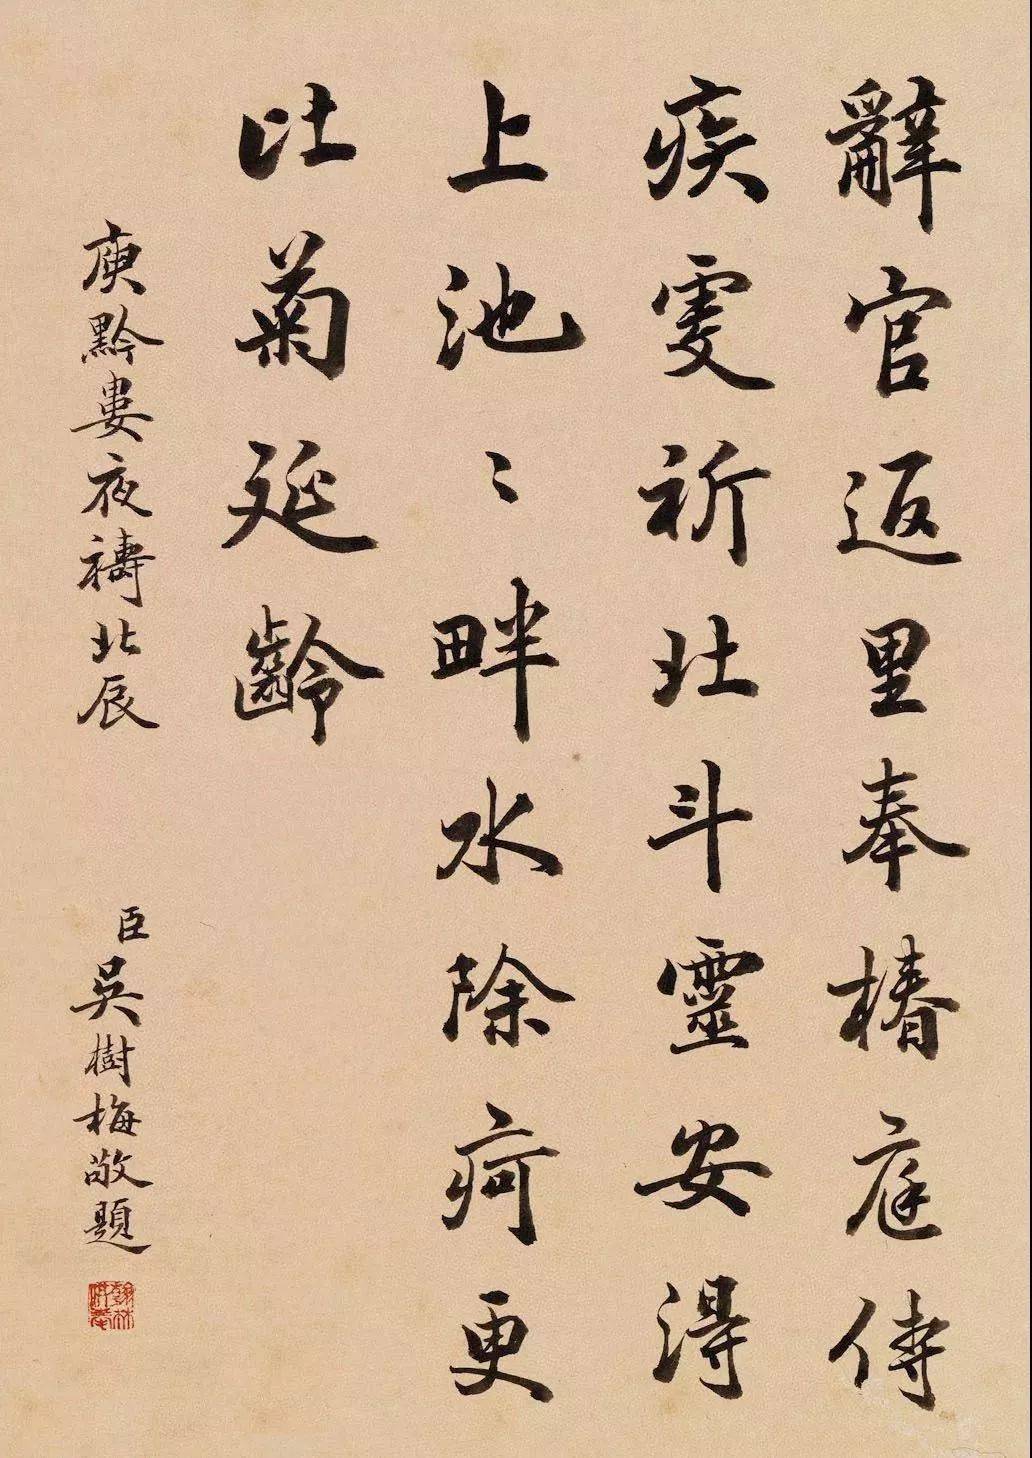 辭官返里奉椿庭侍
疾虔祈北斗靈安得
上池〻畔水除疴更
比菊延齡
庾黔婁夜禱北辰
臣吳樹梅敬題
翰林供奉